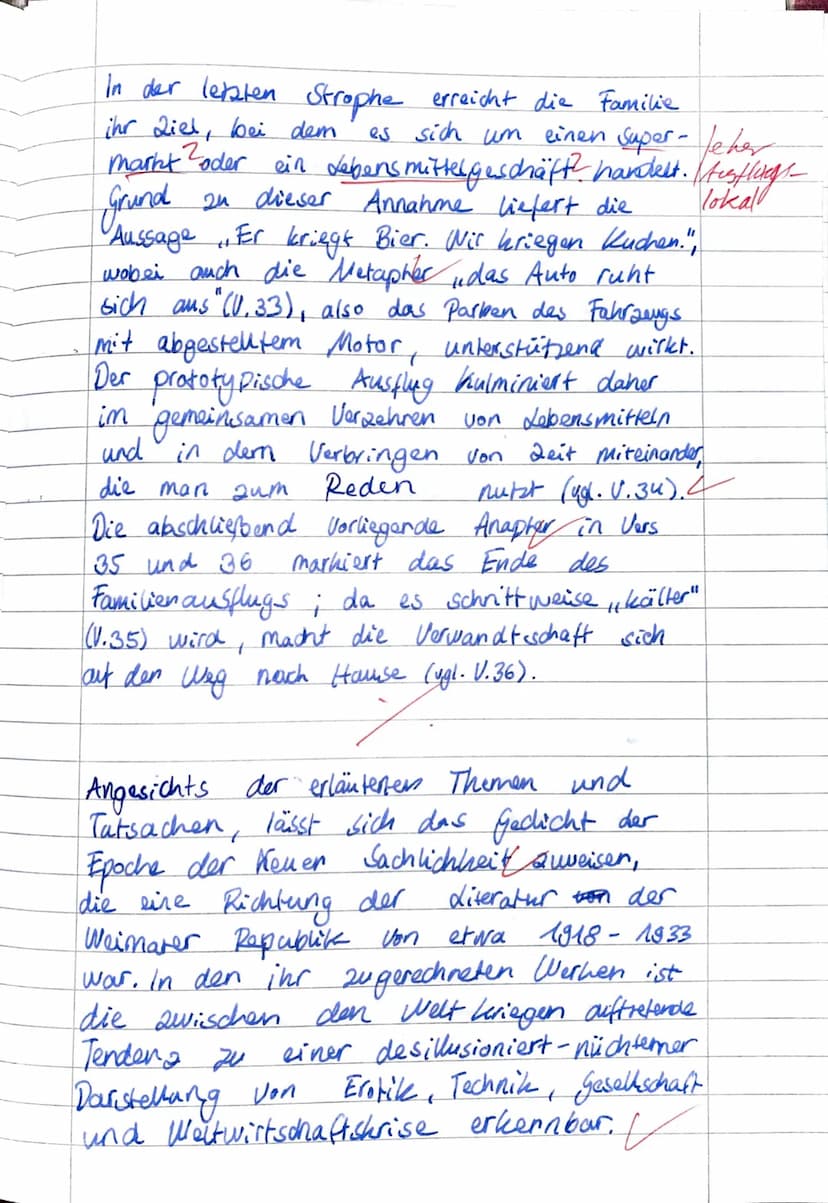 In der letzten Strophe erreicht die Familie
ihr Ziel, bei dem es sich um einen Super-
markt? oder ein Lebensmittelgeschäft? handelt.
eher
Ausflugs-
lokal
Grund zu dieser Annahme liefert die
Aussage „Er kriegt Bier. Wir kriegen Kuchen.",
wobei auch die Metapher „das Auto ruht
sich aus" (V.33), also das Parken des Fahrzeugs
mit abgestelltem Motor, unterstützend wirkt.
Der prototypische Ausflug kulminiert daher
im gemeinsamen Verzehren von Lebensmitteln
und in dem Verbringen von Zeit miteinander,
die man zum Reden nutzt (vgl. V.34).
Die abschließend vorliegende Anapher in Vers
35 und 36 markiert das Ende des
Familienausflugs; da es schrittweise „kälter"
(V.35) wird, macht die Verwandtschaft sich
auf den Weg nach Hause (vgl. V.36).
Angesichts der erläuterten Themen und
Tatsachen, lässt sich das Gedicht der
Epoche der Neuen Sachlichkeit zuweisen,
die eine Richtung der Literatur von der
Weimarer Republik von etwa 1918 - 1933
war. In den ihr zugerechneten Werken ist
die zwischen den Weltkriegen auftretende
Tendenz zu einer desillusioniert-nüchterner
Darstellung von Erotik, Technik, Gesellschaft
und Weltwirtschaftskrise erkennbar.